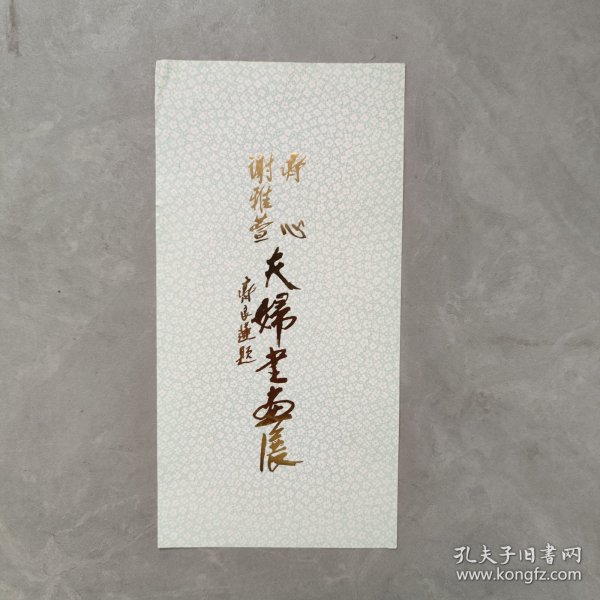 齐心
谢雅萱
夫婦书画展
齐良迟题
孔夫子旧書网
www.kongfz.com